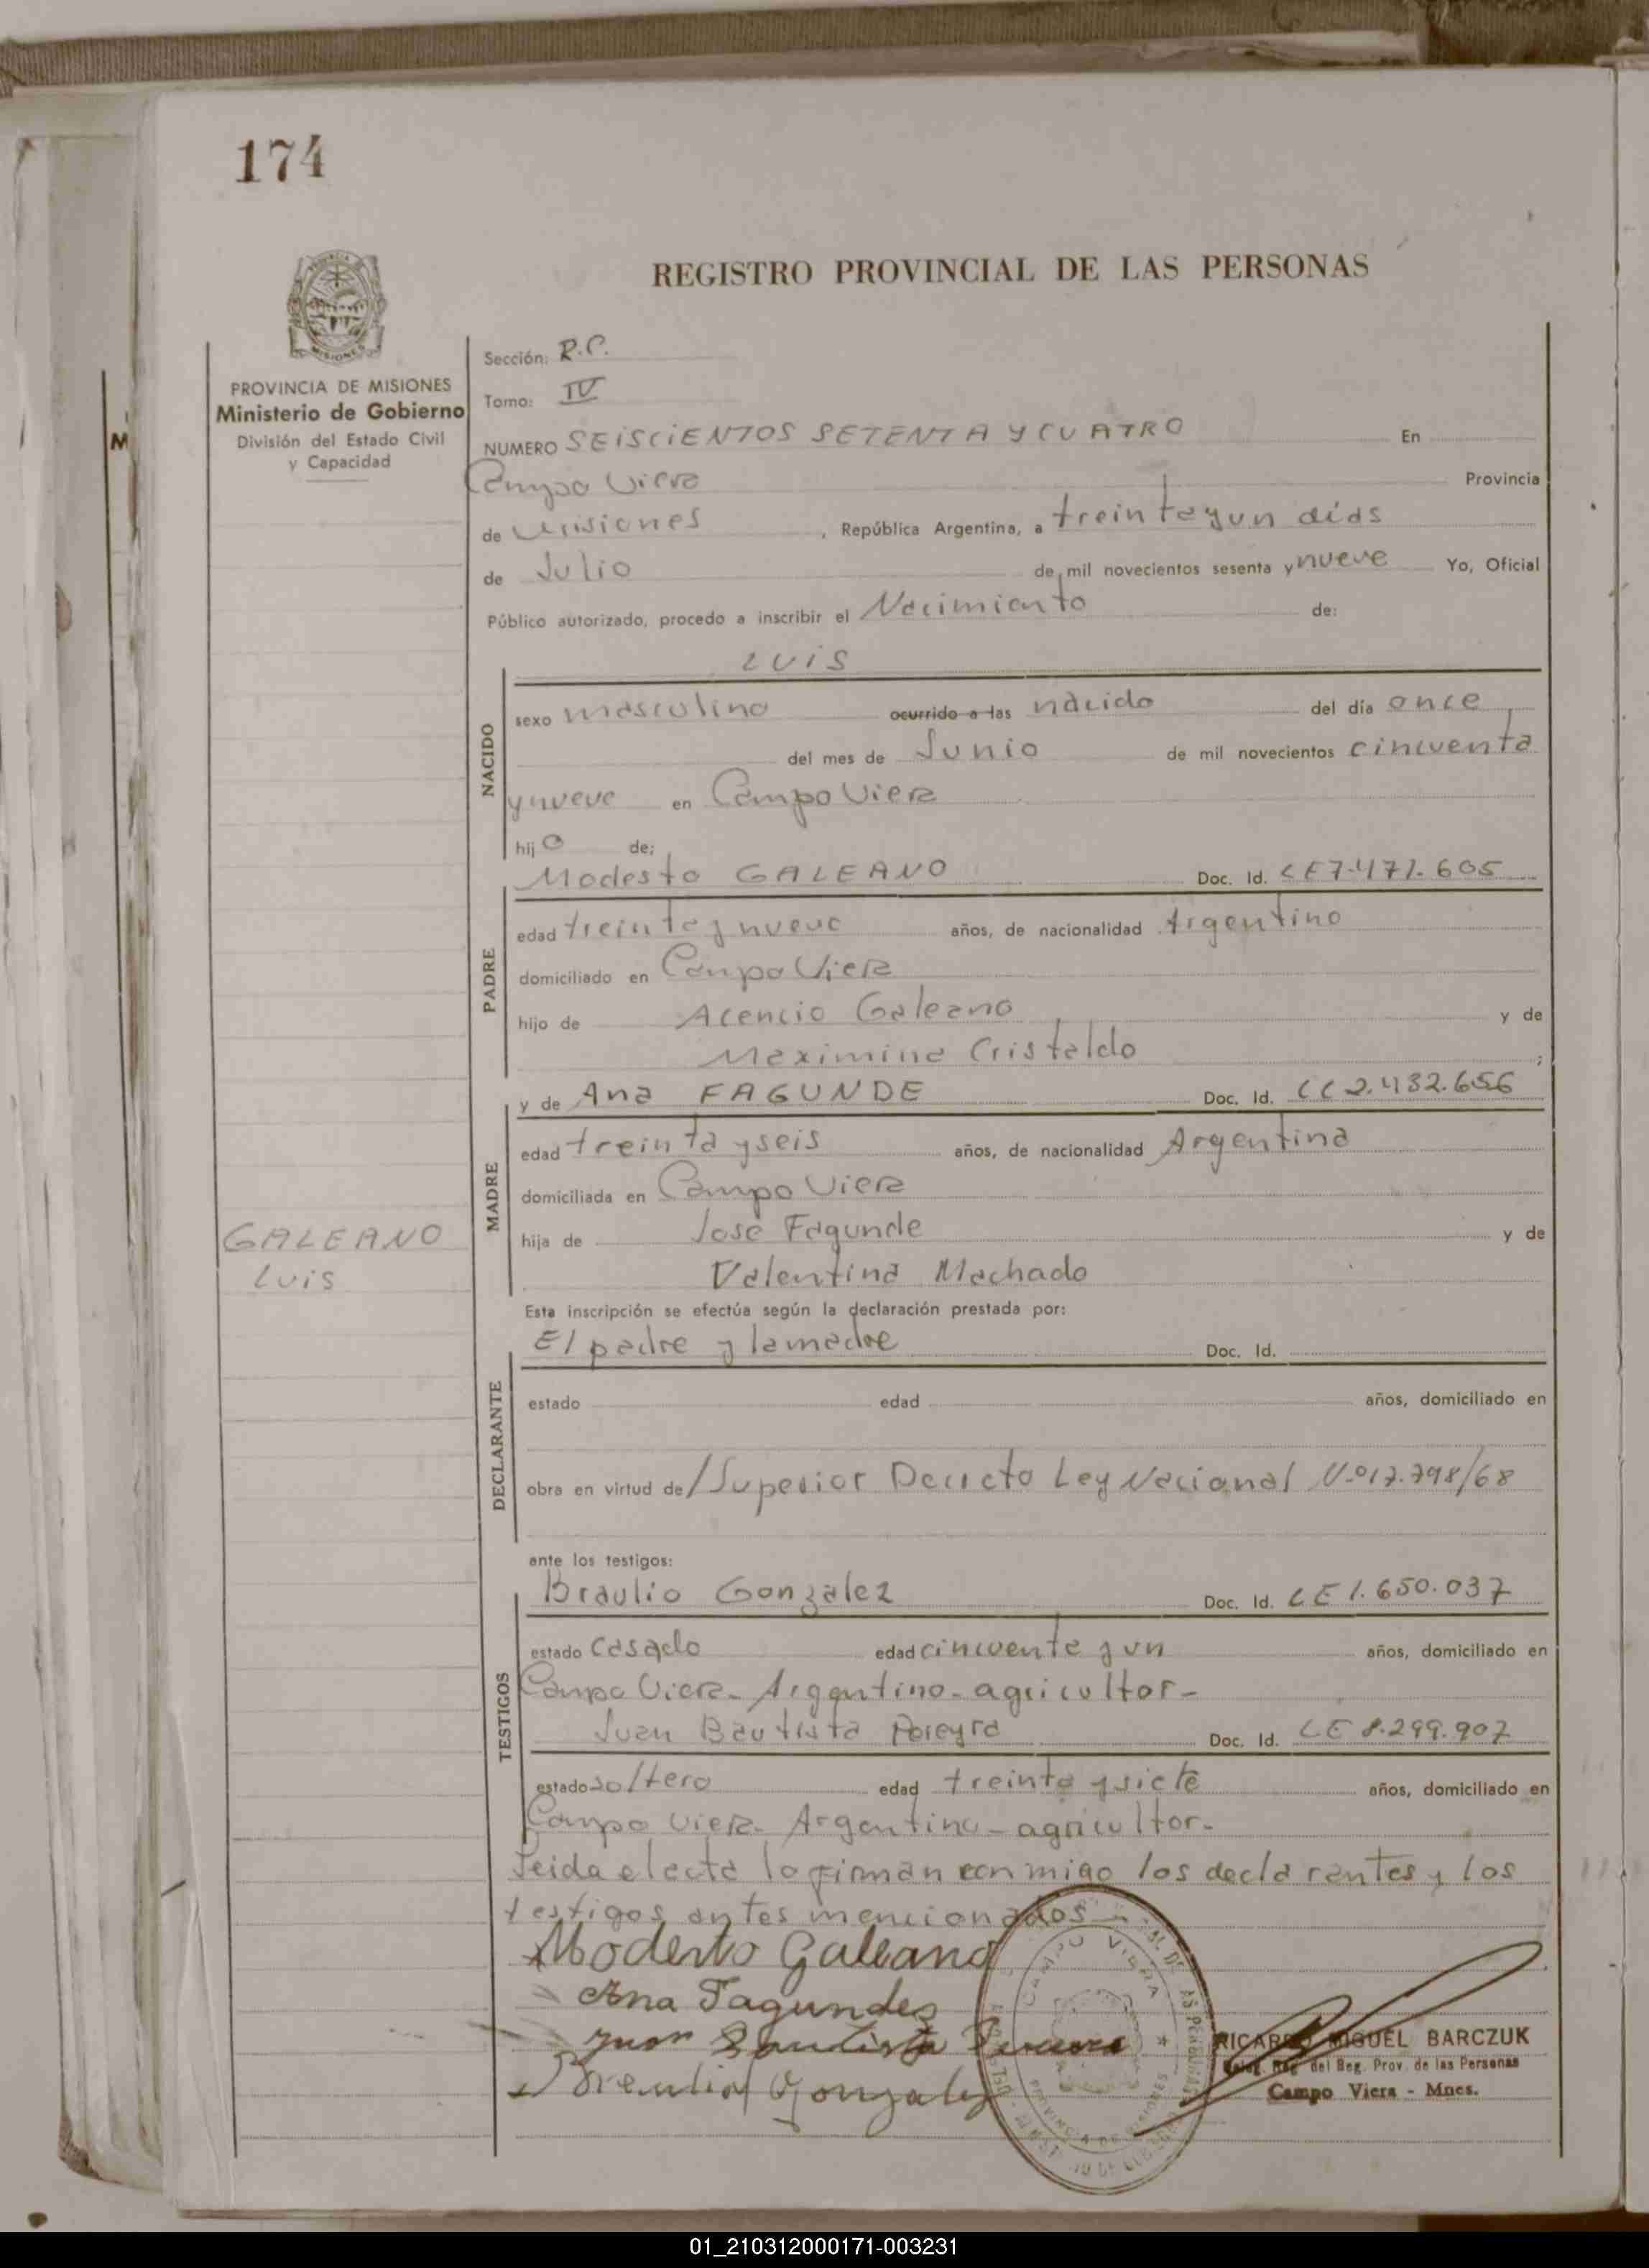 174
REGISTRO PROVINCIAL DE LAS PERSONAS
MISIONES
PROVINCIA DE MISIONES
Ministerio de Gobierno
División del Estado Civil
y Capacidad
Sección: R.C.
Tomo: IV
NUMERO SEISCIENTOS SETENTA Y CUATRO En
Campo Viera Provincia
de Misiones, República Argentina, a treinta y un días
de Julio de mil novecientos sesenta y nueve Yo, Oficial
Público autorizado, procedo a inscribir el Nacimiento de:
LUIS
NACIDO
sexo masculino ocurrido a las nacido del día once
del mes de Junio de mil novecientos cincuenta
y nueve en Campo Viera
hijo de;
Modesto GALEANO Doc. Id. CE 7.471.605
PADRE
edad treinta y nueve años, de nacionalidad Argentino
domiciliado en Campo Viera
hijo de Acencio Galeano y de
Maximina Cristaldo ;
y de Ana FAGUNDE Doc. Id. CC 2.432.656
MADRE
edad treinta y seis años, de nacionalidad Argentina
domiciliada en Campo Viera
hija de José Fagunde y de
Valentina Machado
GALEANO
Luis
Esta inscripción se efectúa según la declaración prestada por:
El padre y la madre Doc. Id.
DECLARANTE
estado edad años, domiciliado en
obra en virtud de/Superior Decreto Ley Nacional N.º 17.798/68
ante los testigos:
Braulio Gonzalez Doc. Id. CE 1.650.037
TESTIGOS
estado casado edad cincuenta y un años, domiciliado en
Campo Viera - Argentino - agricultor -
Juan Bautista Pereyra Doc. Id. CE 8.299.907
estado soltero edad treinta y siete años, domiciliado en
Campo Viera - Argentino - agricultor -
Leida el acta la firman conmigo los declarantes y los
testigos antes mencionados
Modesto Galeano
Ana Fagundes
Juan Bautista
Braulio Gonzalez
CAMPO VIERA
PROVINCIA DE MISIONES
RICARDO MIGUEL BARCZUK
del Reg. Prov. de las Personas
Campo Viera - Mnes.
01_210312000171-003231